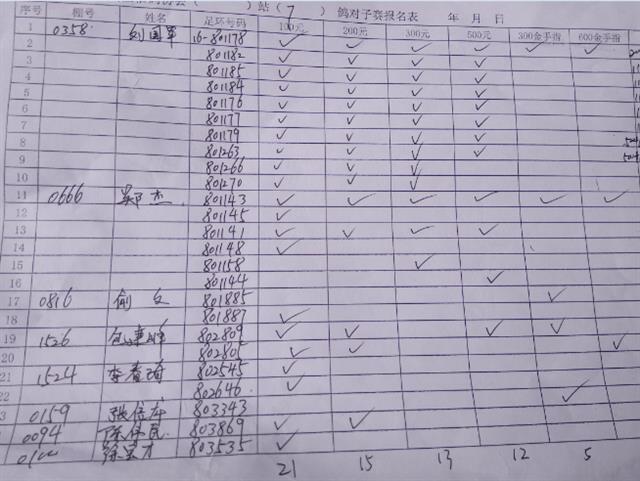 )站( 7 )鸽对子赛报名表 年 月 日
序号 棚号 姓名 足环号码 100元 200元 300元 500元 300金手指 600金手指
1 0358 刘国军 16-801178 ✓ ✓ ✓ ✓ ✓ ✓
2 801182 ✓ ✓ ✓ ✓
3 801185 ✓ ✓ ✓ ✓
4 801184 ✓ ✓ ✓ ✓
5 801176 ✓ ✓ ✓ ✓
6 801177 ✓ ✓ ✓ ✓
7 801179 ✓ ✓ ✓ ✓
8 801263 ✓ ✓ ✓ ✓
9 801266 ✓ ✓ ✓
10 801270 ✓ ✓ ✓
11 0666 郑杰 801143 ✓ ✓ ✓ ✓ ✓ ✓
12 801145 ✓
13 801141 ✓ ✓ ✓ ✓
14 801148 ✓
15 801158 ✓
16 801144 ✓
17 0816 俞 801885 ✓
18 801887 ✓
19 1526 包 802809 ✓ ✓ ✓ ✓
20 802801 ✓ ✓ ✓
21 1524 李 802545 ✓
22 802646 ✓
3 0159 张位 803343 ✓
0094 陈伟民 803869 ✓ ✓
徐 才 803535 ✓
21 15 13 12 5